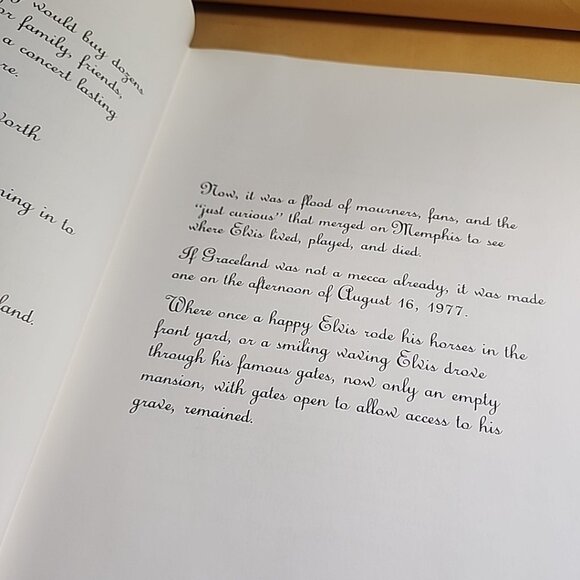 would buy dozens
family, friends,
a concert lasting
re.
orth
ning in to
land.
Now, it was a flood of mourners, fans, and the
"just curious" that merged on Memphis to see
where Elvis lived, played, and died.
If Graceland was not a mecca already, it was made
one on the afternoon of August 16, 1977.
Where once a happy Elvis rode his horses in the
front yard, or a smiling waving Elvis drove
through his famous gates, now only an empty
mansion, with gates open to allow access to his
grave, remained.